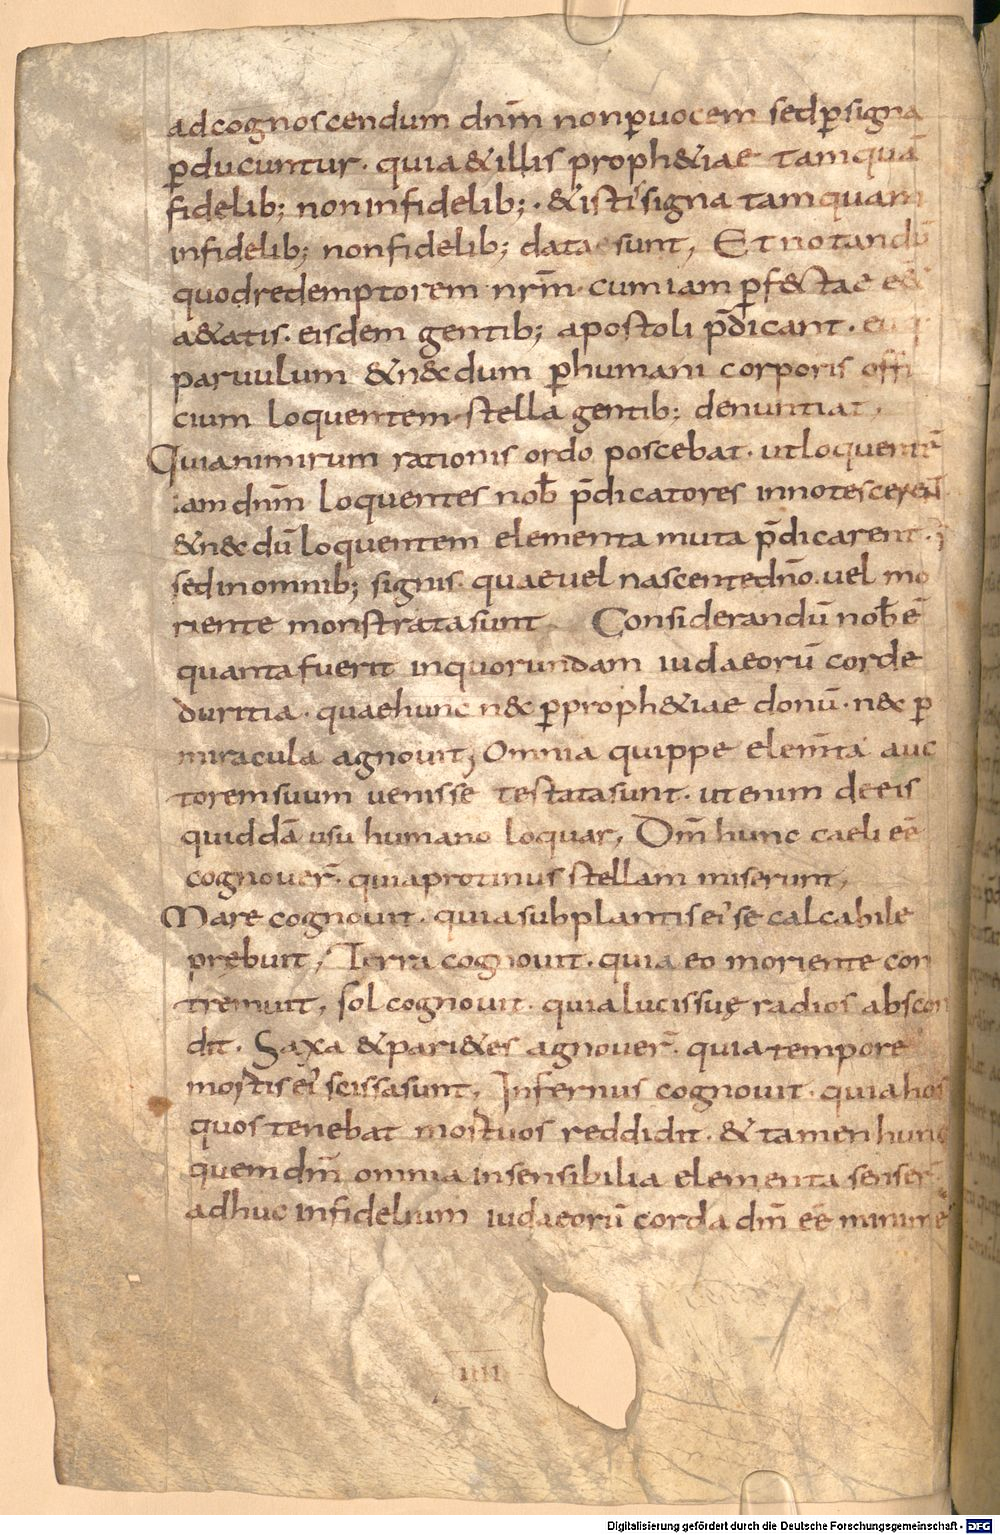 adcognoscendum dnm̄ nonp̱uocem sedp̱signa
p̱ducuntur· quia&illis proph&iae tamquā
fidelib; noninfidelib;· &istisigna tamquam
infidelib; nonfidelib; datae sunt, Et notandū
quodredemptorem nrm̄· cumiam p̱f&ctae
a&atis· eisdem gentib; apostoli p̄dicant·
paruulum &n&dum p̱humani corporis offi
cium loquentem· stella gentib; denuntiat,
Quianimirum rationis ordo poscebat· utloquentē
iam dnm̄ loquentes nob̄ p̄dicatores innotescerent
&n&dū loquentem elementa muta p̄dicarent·
sedinomnib; signis· quaeuel nascentedn̄o· uel mo
riente monstratasunt Considerandū nob̄ ē
quantafuerit inquorundam iudaeorū corde
duritia· quaehunc n& p̱proph&iae donū· n& p̱
miracula agnouit, Omnia quippe elem̄ta auc
toremsuum uenisse testatasunt· utenim deeis
quiddā usu humano loquar, Dm̄ hunc caeli eē
cognouer̄· quiaprotinus stellam miserunt,
Mare cognouit· quiasubplantisei' se calcabile
prębuit, Terra cognouit· quia eo moriente con
tremuit, sol cognouit· quialucissuę radios abscon
dit· Saxa &pari&es agnouer̄· quiatempore
mortisei' scissasunt, Infernus cognouit· quiahos
quos tenebat mortuos reddidit· & tamen hunc
quem dm̄ omnia insensibilia elementa senser̄·
adhuc infidelium iudaeorū corda dm̄ eē minime
IIII
Digitalisierung gefördert durch die Deutsche Forschungsgemeinschaft - DFG